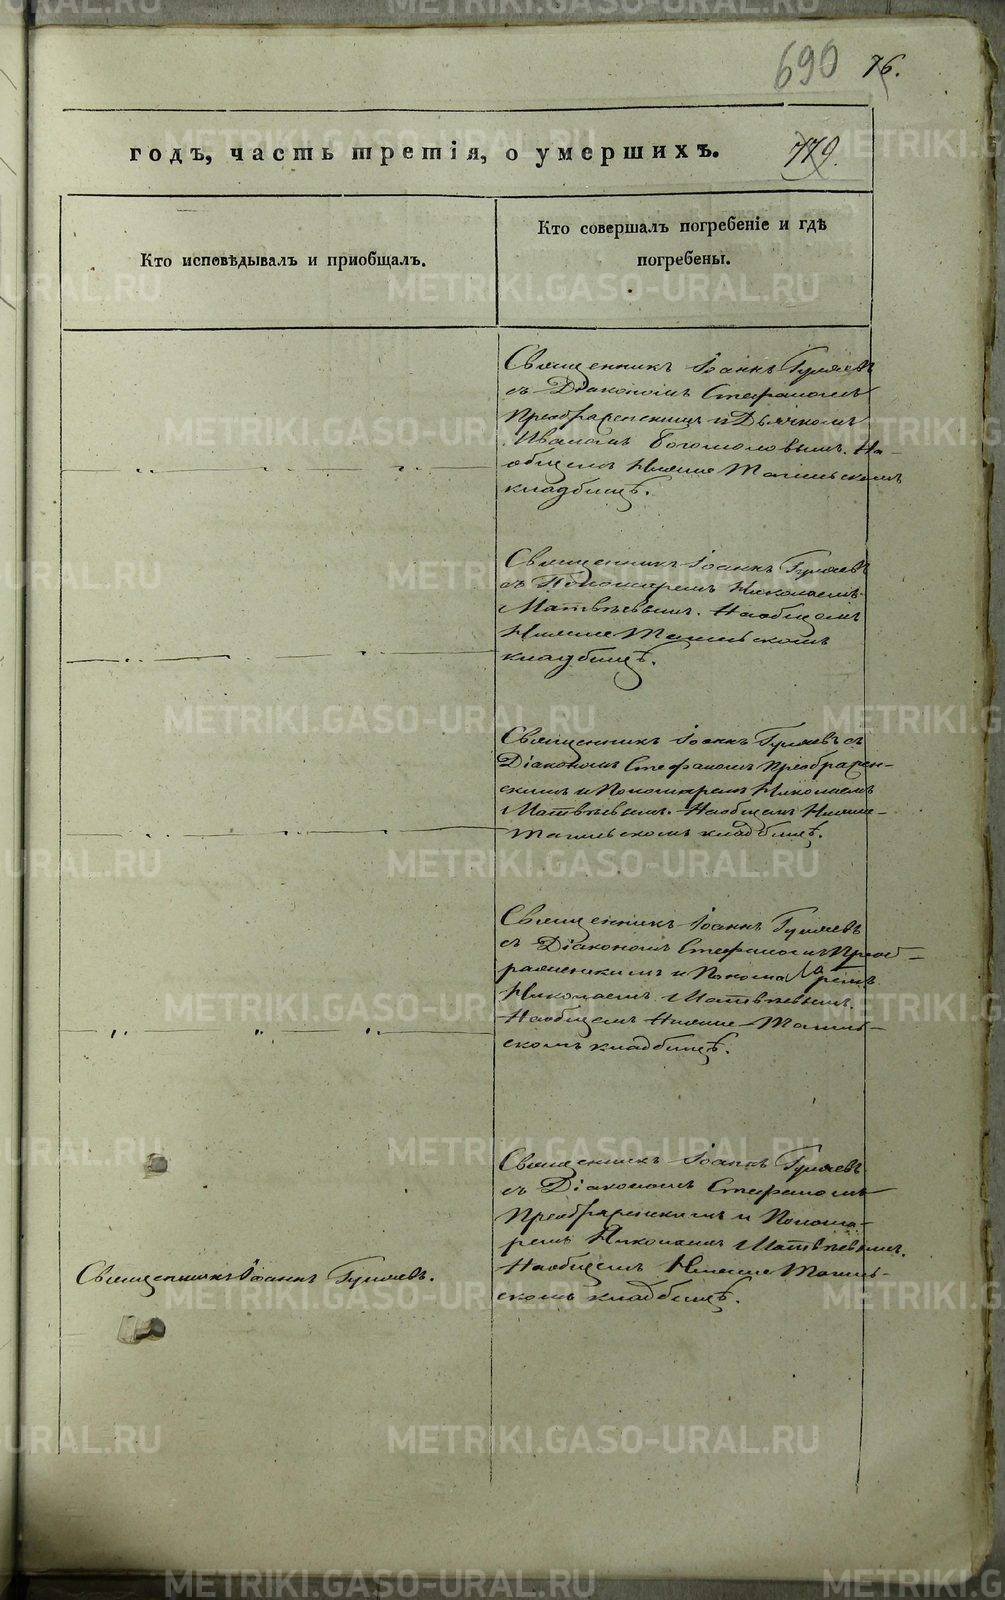 690 76.
годъ, часть третія, о умершихъ. 779.
Кто исповѣдывалъ и пріобщалъ.
Кто совершалъ погребеніе и гдѣ
погребены.
Священникъ Іоаннъ Гуляевъ
съ Діакономъ Стефаномъ
Преображенскимъ и Дьячкомъ
Иваномъ Богомоловымъ. На
общемъ Нижне Тагильскомъ
кладбищѣ.
Священникъ Іоаннъ Гуляевъ
съ Пономаремъ Николаемъ
Матвѣевымъ. На общемъ
Нижне Тагильскомъ
кладбищѣ.
Священникъ Іоаннъ Гуляевъ съ
Діакономъ Стефаномъ Преображен-
скимъ и Пономаремъ Николаемъ
Матвѣевымъ. На общемъ Нижне-
Тагильскомъ кладбищѣ.
Священникъ Іоаннъ Гуляевъ
съ Діакономъ Стефаномъ Преоб-
раженскимъ и Пономаремъ
Николаемъ Матвѣевымъ.
На общемъ Нижне-Тагиль-
скомъ кладбищѣ.
Священникъ Іоаннъ Гуляевъ
съ Діакономъ Стефаномъ
Преображенскимъ и Понома-
ремъ Николаемъ Матвѣевымъ.
На общемъ Нижне Тагиль-
скомъ кладбищѣ.
Священникъ Іоаннъ Гуляевъ.
METRIKI.GASO-URAL.RU